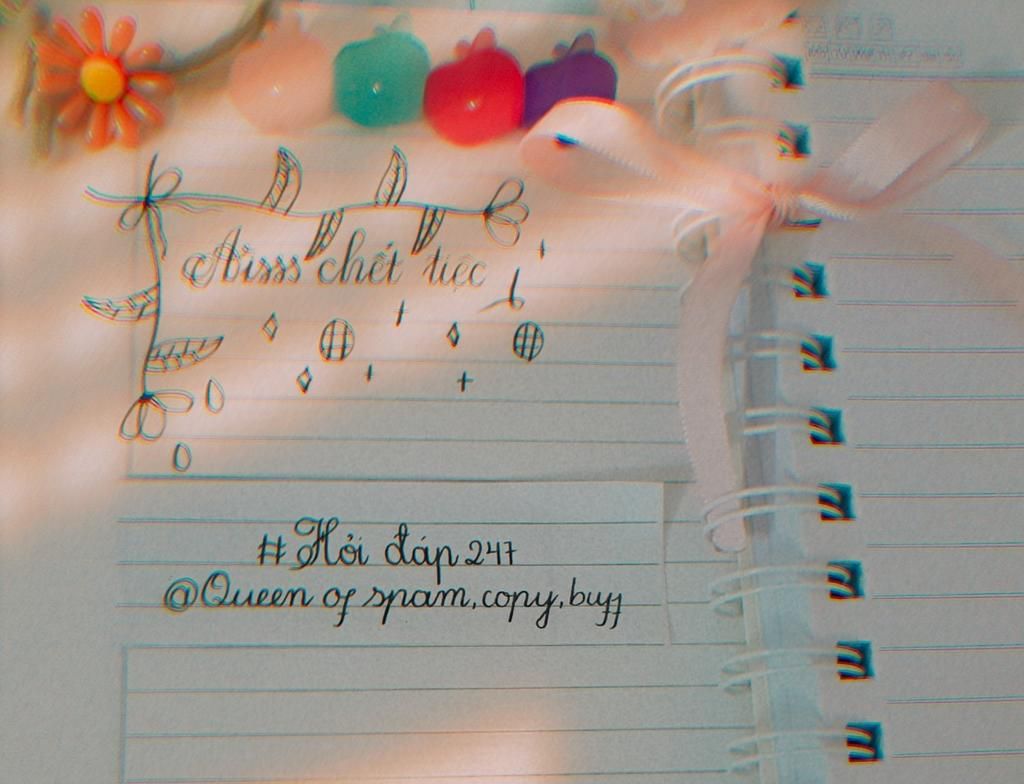 Aisss chết tiệc
#Hỏi đáp 247
@Queen of spam, copy, buff